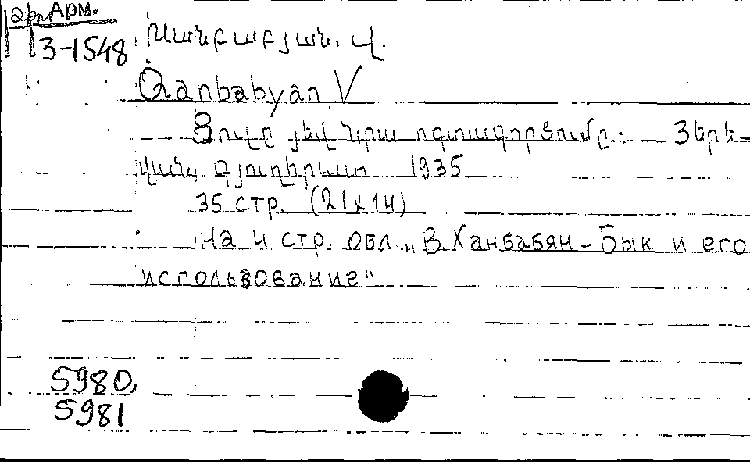 Арм.
3-1548
Խանբաբյան. Վ.
Qanbabyan V
Ցուլը յեվ նրա ոգտագործումը. Յերե-
վան, Գյուղհրատ 1935
35 стр. (21x14)
На 4 стр. обл. „В. Ханбабян - Бык и его
использование"
5980,
5981